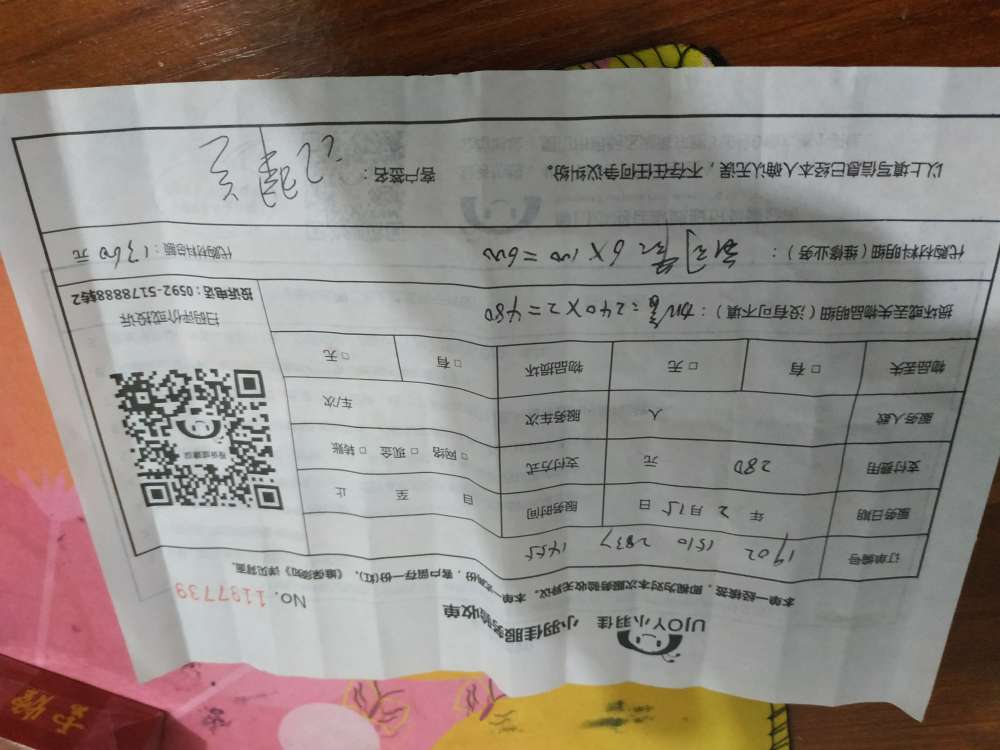 UJOY小羽佳 小羽佳服务验收单
No. 1197739
本单一经接签，即视为对本次服务验收无异议。本单一式两份，客户留存一份(红)，《维保须知》详见背面。
订单编号 1902 1510 2837 1455
服务日期 年 2月15日 服务时间 自 至 止
支付费用 280 元 支付方式 □ 网络 □ 现金 □ 转账
服务人数 人 服务车次 车/次
物品丢失 □ 有 □ 无 物品损坏 □ 有 □ 无
投诉或建议
扫码评价或投诉
投诉电话：0592-5178888转2
损坏或丢失物品明细（没有可不填）： =240×2=480
代购材料明细（维修业务）： 6×100=600 代购材料总额：1360 元
以上填写信息已经本人确认无误，不存在任何争议纠纷。 客户签名：